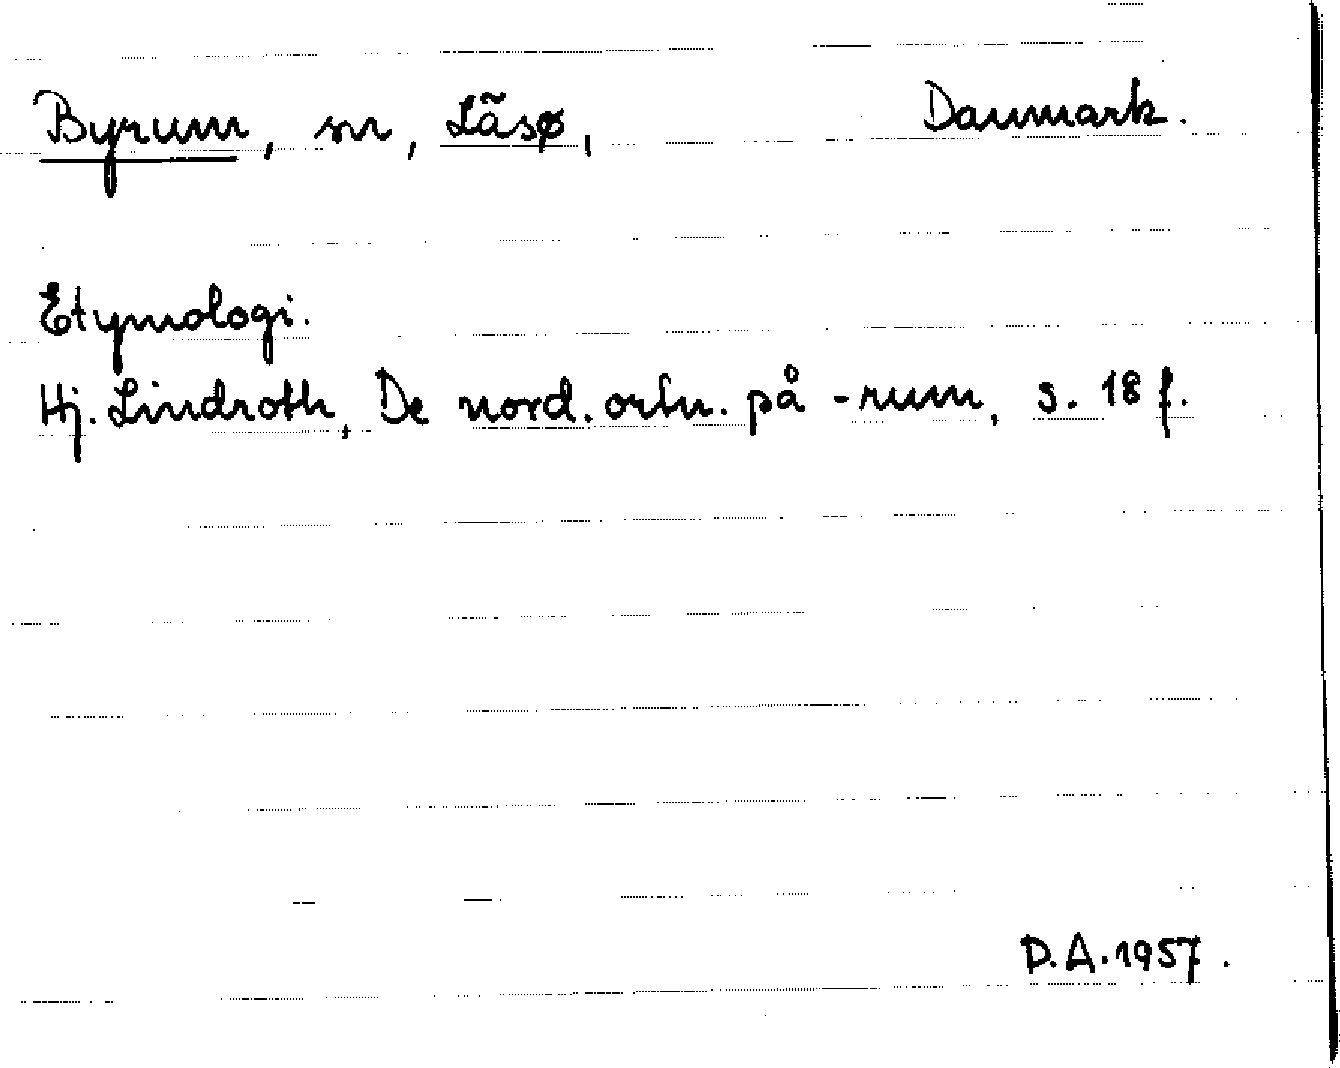 Byrum, sn, Läsø, Danmark.
Etymologi.
Hj. Lindroth, De nord. ortn. på -rum, s. 18 f.
D.A. 1957.